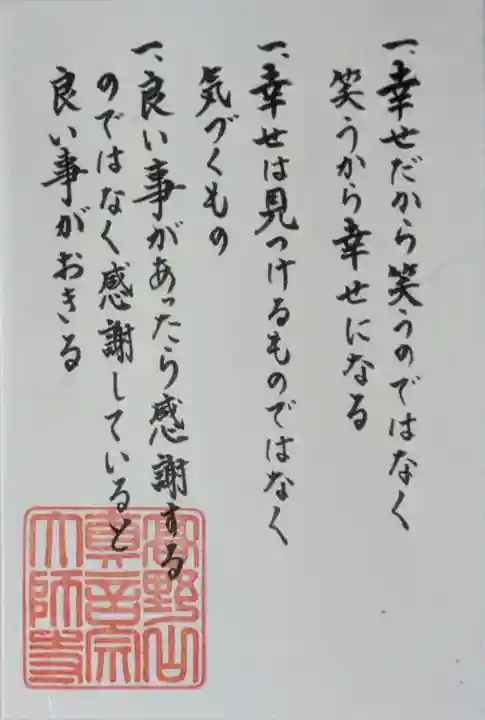 一、幸せだから笑うのではなく
笑うから幸せになる
一、幸せは見つけるものではなく
気づくもの
一、良い事があったら感謝する
のではなく感謝していると
良い事がおきいる
高野山
真言宗
大師寺